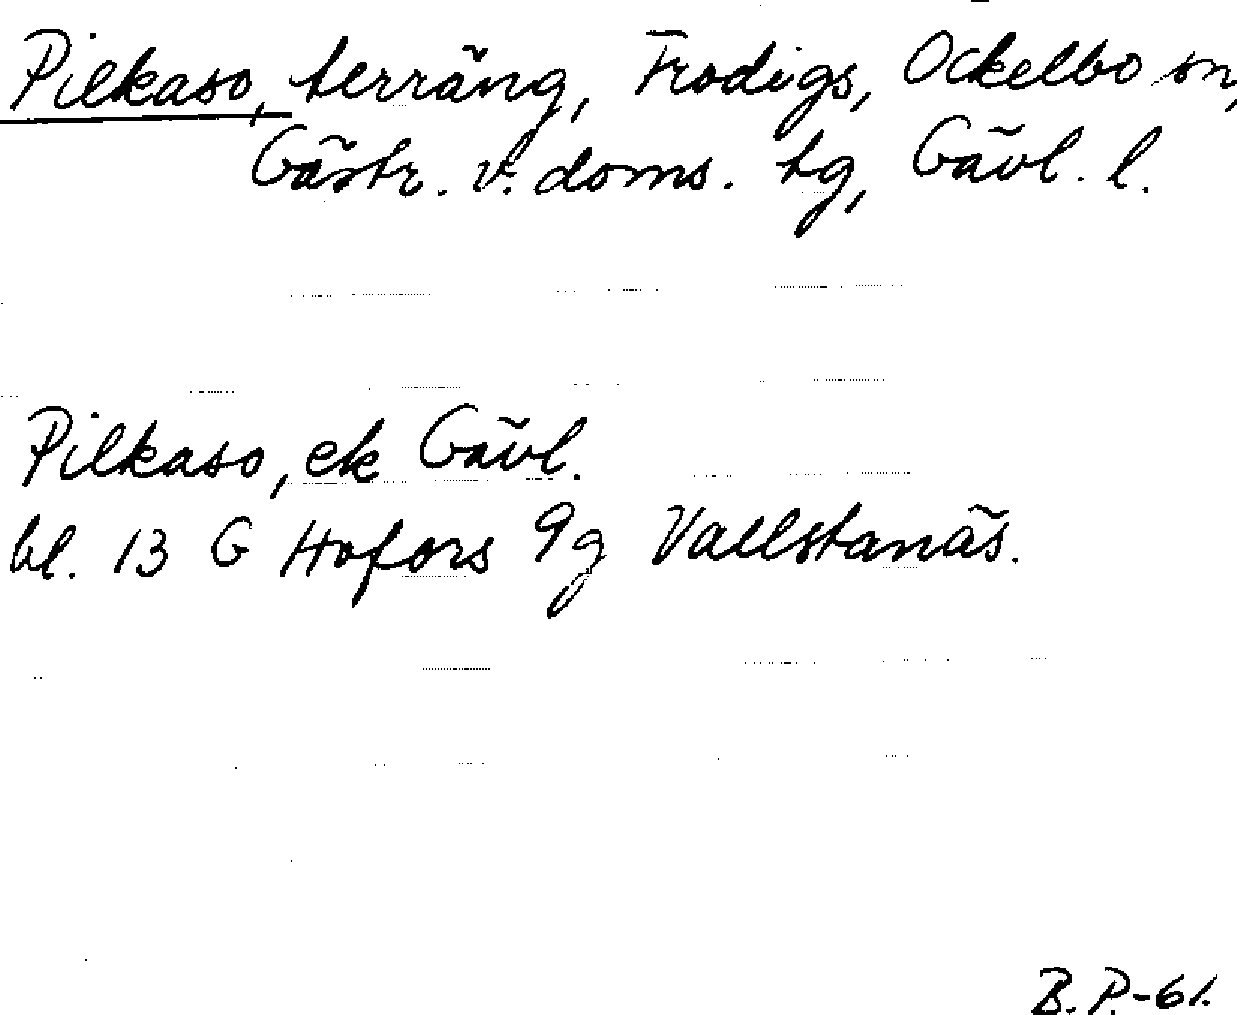 Pilkaso, terräng, Frodigs, Ockelbo sn,
Gästr. v. doms. tg, Gävl. l.
Pilkaso, ek Gävl.
bl. 13 G Hofors 9g Vallstanäs.
B. P. -61.